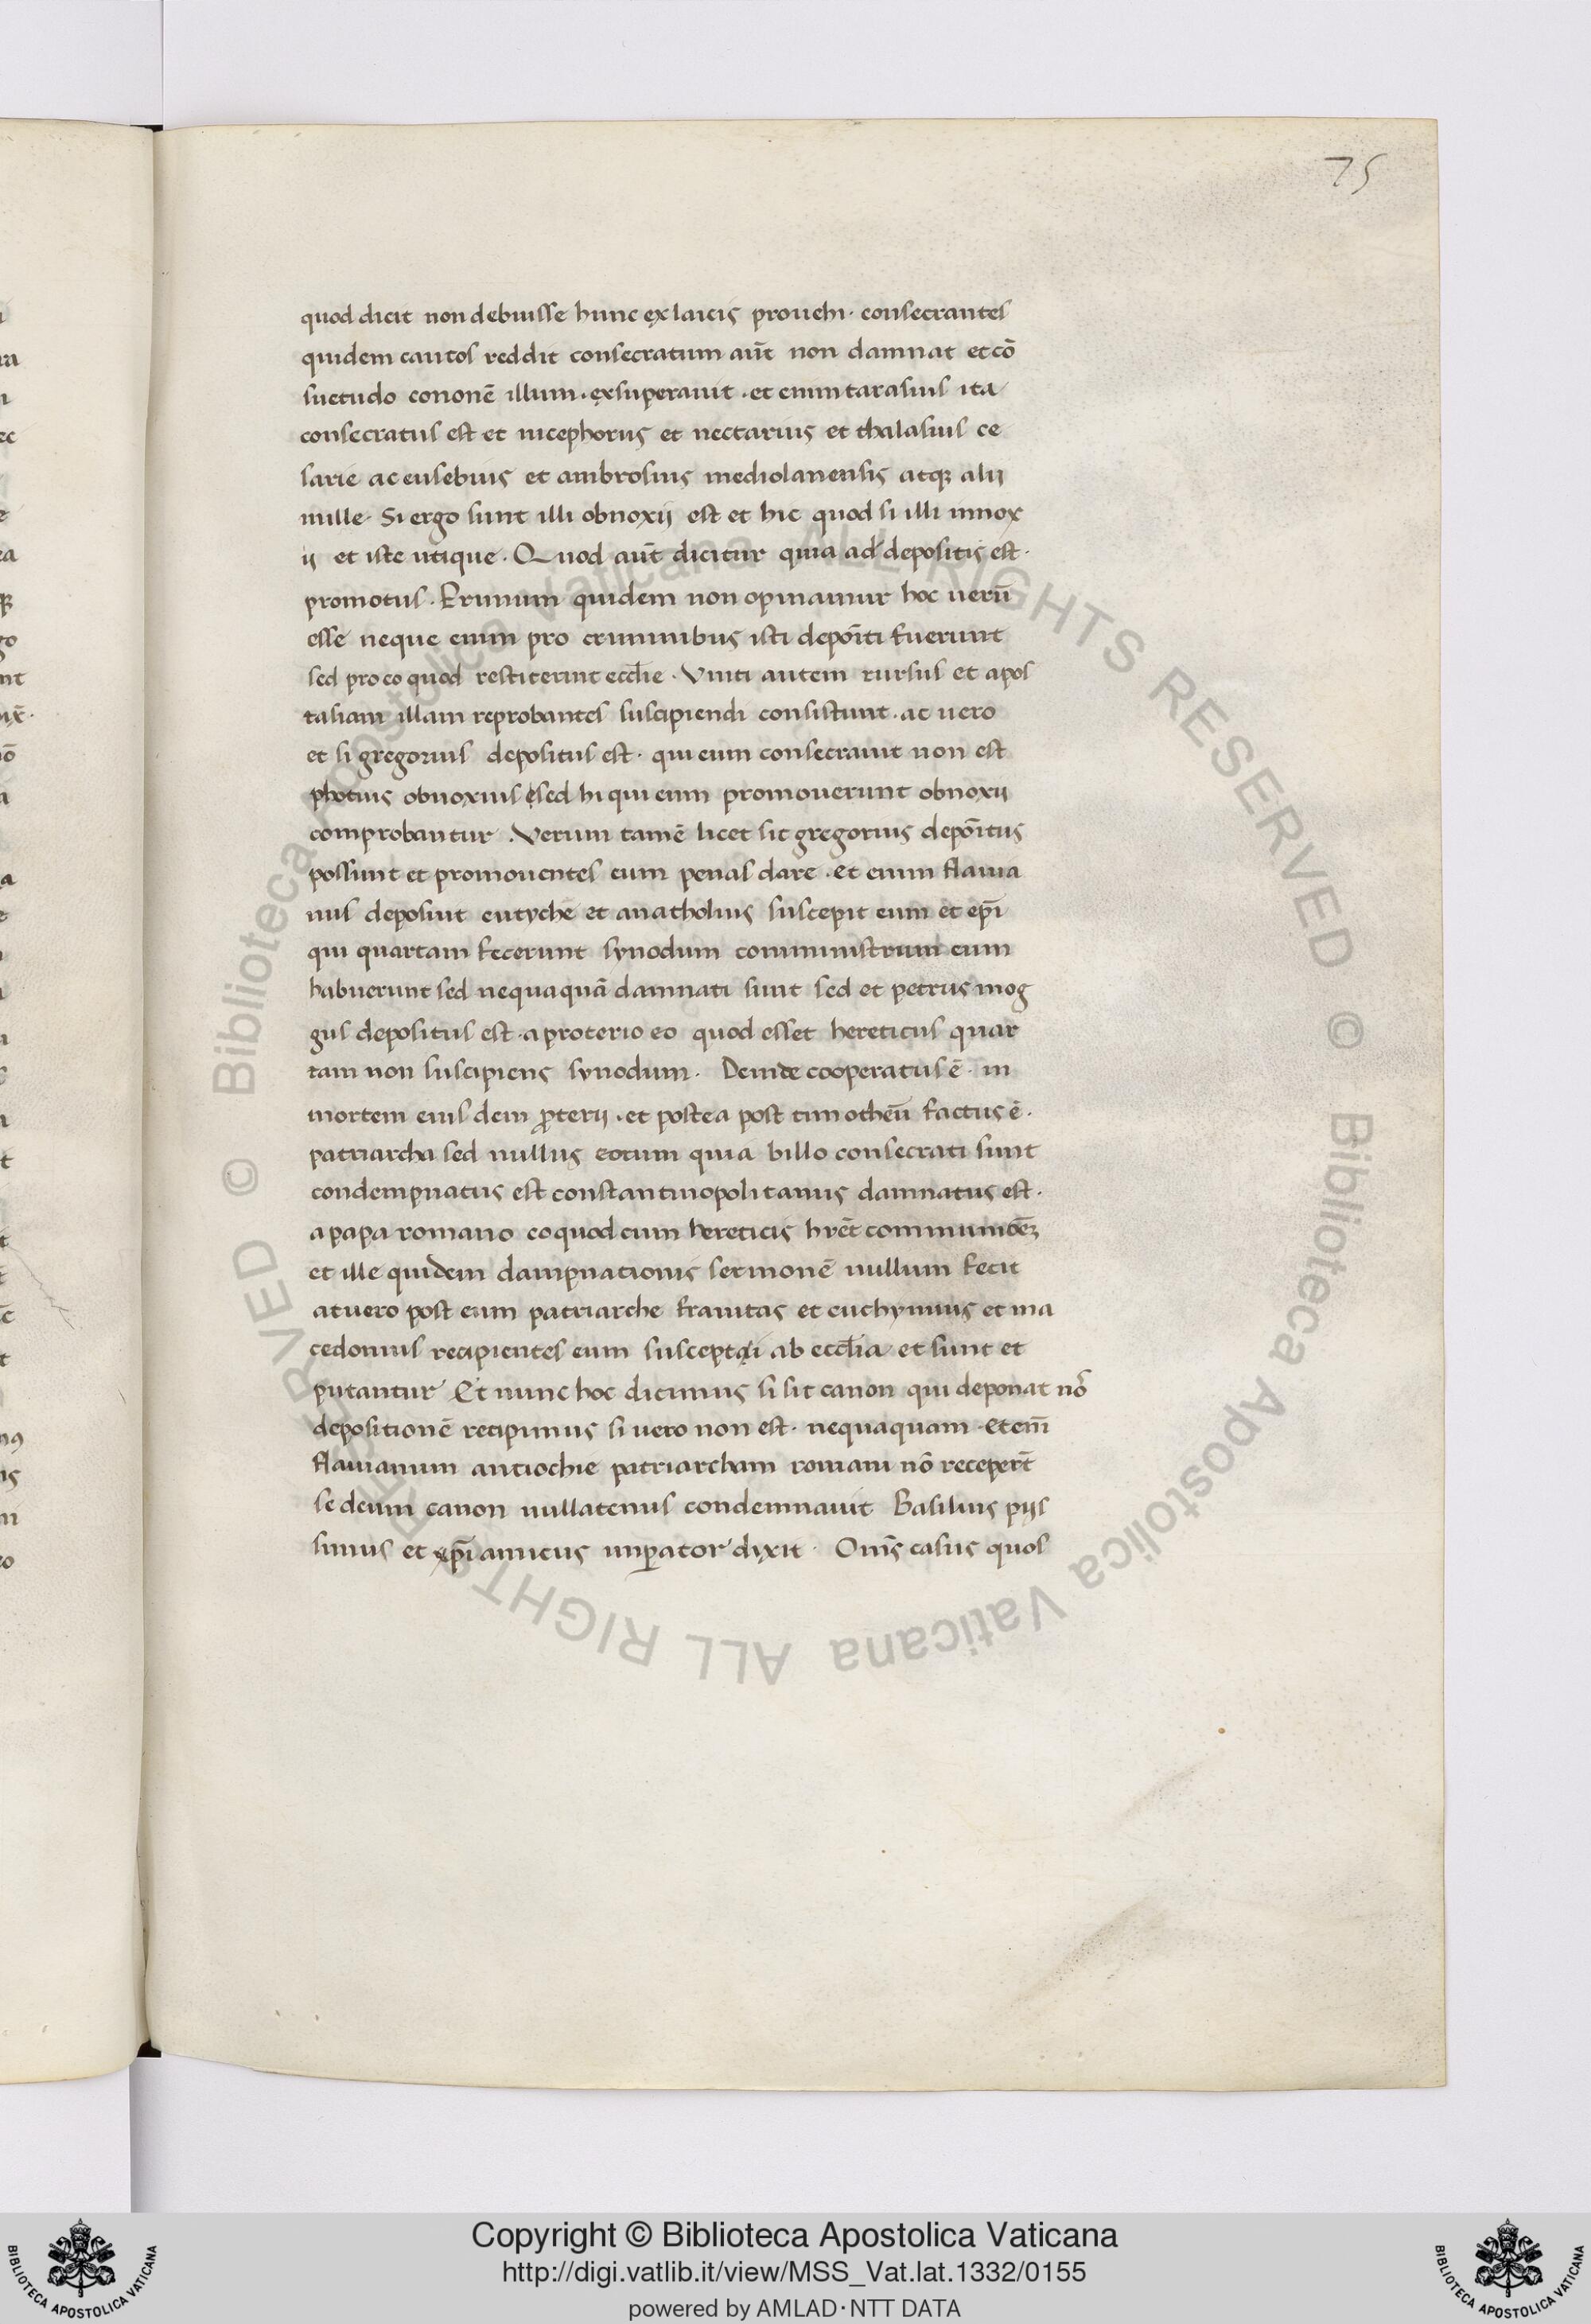 75
quod dicit non debuisse hunc ex laicis prouehi · consecrantes
quidem cautos reddit consecratum aūt non damnat et cō
suetudo cononē illum · exsuperauit · et enim tarasius ita
consecratus est et nicephorus et nectarius et thalasius ce
sarie ac eusebius et ambrosius mediolanensis atqꝫ alij
mille · Si ergo sunt illi obnoxij est et hic quod si illi innox
ij et iste utique · Quod aūt dicitur quia ad depositis est ·
promotus · Primum quidem non opinamur hoc uerū
esse neque enim pro criminibus isti depōiti fuerunt
sed pro eo quod restiterint eccl̄ie · Viuti autem rursus et apos
tasiam illam reprobantes suscipiendi consistunt · ac uero
et si gregorius depositus est · qui eum consecrauit non est
photius obnoxius sed hi qui eum promouerunt obnoxij
comprobantur · Verum tamē licet sit gregorius depōitus
possunt et promouentes eum penas dare · et enim flauia
nus deposuit eutychē et anatholius suscepit eum et ep̄i
qui quartam fecerunt synodum comministrum eum
habuerunt sed nequaquā damnati sunt sed et petrus mog
gus depositus est · a proterio eo quod esset hereticus quar
tam non suscipiens synodum · Deinde cooperatus ē · in
mortem eius dem ꝓterij · et postea post timotheū factus ē ·
patriarcha sed nullus eorum quia billo consecrati sunt
condempnatus est constantinopolitanus damnatus est ·
a papa romano eo quod cum hereticis hrēt communiōeꝫ
et ille quidem dampnationis sermonē nullum fecit
at uero post eum patriarche frauitas et euthymius et ma
cedonius recipientes eum suscepti ab eccl̄ia et sunt et
putantur Et nunc hoc dicimus si sit canon qui deponat nō
depositionē recipimus si uero non est · nequaquam · et em̄
flauianum antiochie patriarcham romani nō recepert̄
se deum canon nullatenus condemnauit Basilius pijs
simus et xp̄i amicus imꝑator dixit · Om̄s casus quos
© Biblioteca Apostolica Vaticana ALL RIGHTS RESERVED © Biblioteca Apostolica Vaticana ALL RIGHTS RESERVED
Copyright © Biblioteca Apostolica Vaticana
http://digi.vatlib.it/view/MSS_Vat.lat.1332/0155
powered by AMLAD·NTT DATA
BIBLIOTECA APOSTOLICA VATICANA
BIBLIOTECA APOSTOLICA VATICANA